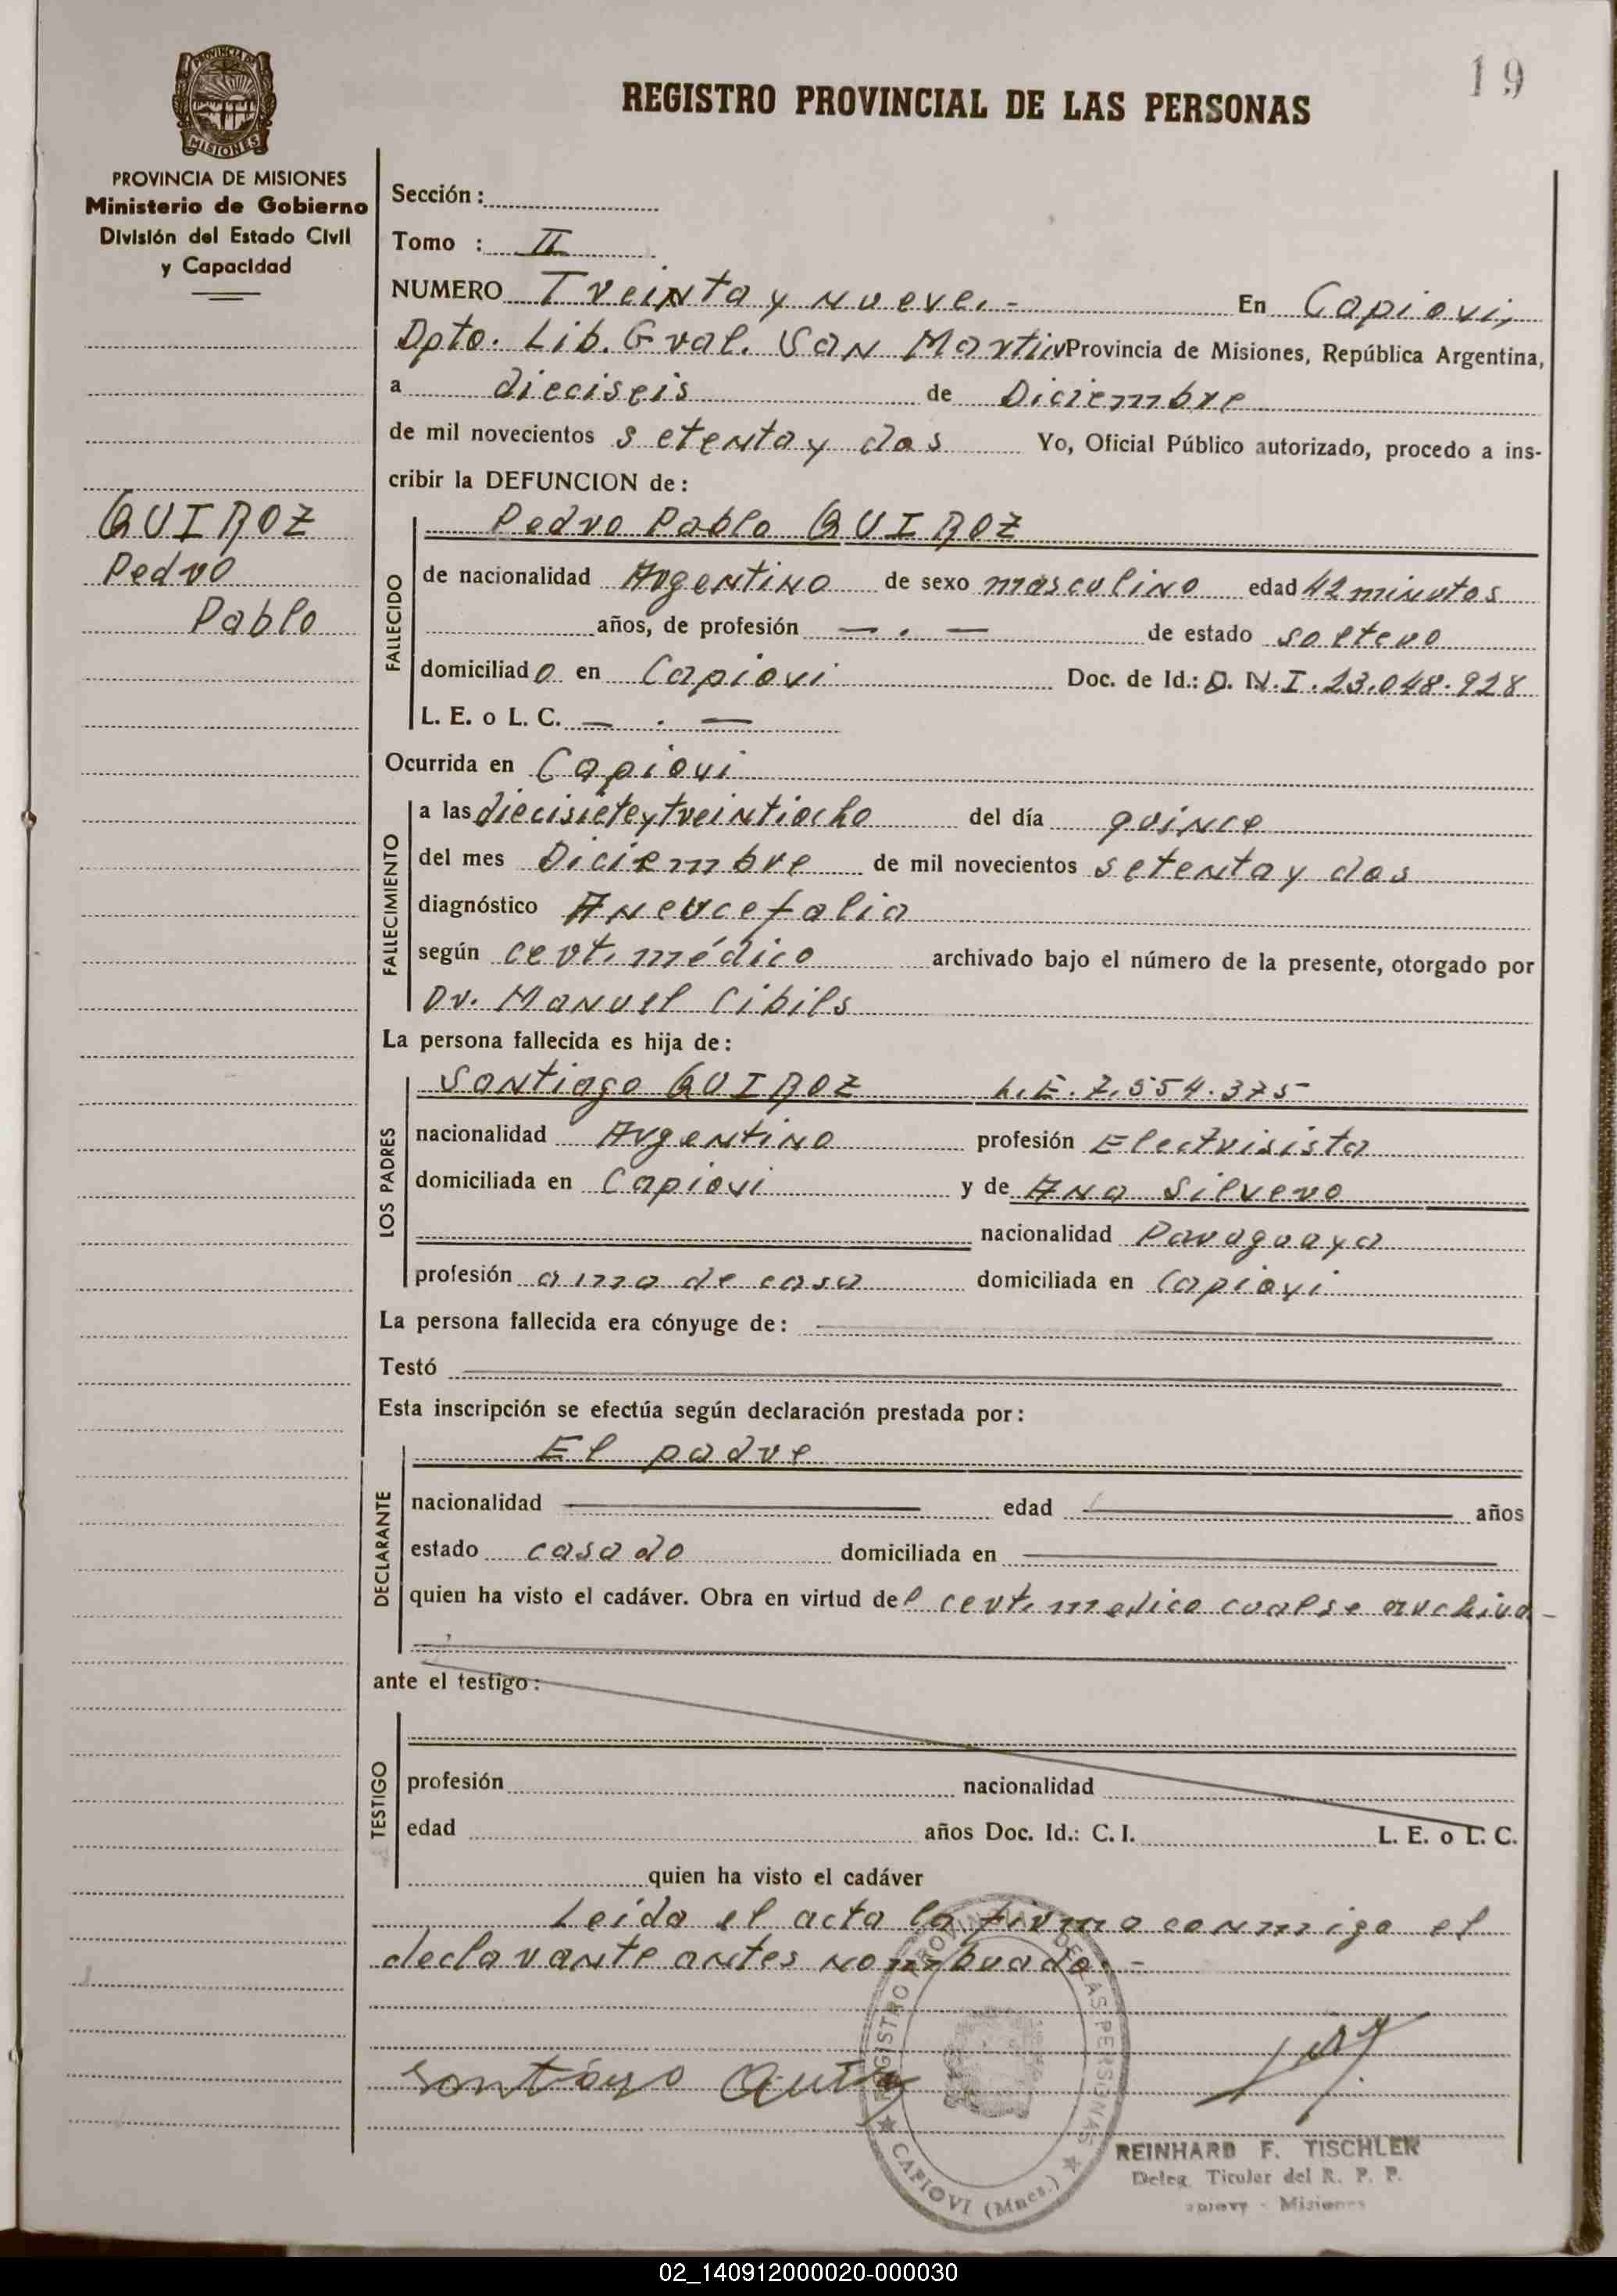 19
REGISTRO PROVINCIAL DE LAS PERSONAS
PROVINCIA DE MISIONES
MISIONES
PROVINCIA DE MISIONES
Ministerio de Gobierno
División del Estado Civil
y Capacidad
QUIROZ
Pedro
Pablo
Sección :
Tomo : II
NUMERO Treinta y nueve.- En Capiovi,
Dpto. Lib. Gral. San Martin Provincia de Misiones, República Argentina,
a dieciseis de Diciembre
de mil novecientos setenta y dos Yo, Oficial Público autorizado, procedo a ins-
cribir la DEFUNCION de :
Pedro Pablo QUIROZ
FALLECIDO
de nacionalidad Argentino de sexo masculino edad 42 minutos
años, de profesión — . — de estado soltero
domiciliado en Capiovi Doc. de Id.: D. N. I. 23.048.928
L. E. o L. C. — . —
Ocurrida en Capiovi
FALLECIMIENTO
a las diecisiete y treintiocho del día quince
del mes Diciembre de mil novecientos setenta y dos
diagnóstico Anencefalia
según cert. médico archivado bajo el número de la presente, otorgado por
Dr. Manuel Cibils
La persona fallecida es hija de :
LOS PADRES
Santiago QUIROZ L.E. 7.554.375
nacionalidad Argentino profesión Electricista
domiciliada en Capiovi y de Ana Silvero
nacionalidad Paraguaya
profesión ama de casa domiciliada en Capiovi
La persona fallecida era cónyuge de :
Testó
Esta inscripción se efectúa según declaración prestada por :
DECLARANTE
El padre
nacionalidad edad años
estado casado domiciliada en
quien ha visto el cadáver. Obra en virtud del cert. medico cual se archiva-
ante el testigo :
TESTIGO
profesión nacionalidad
edad años Doc. Id.: C. I. L. E. o L. C.
quien ha visto el cadáver
Leida el acta la firma conmigo el
declarante antes nombrado.-
REGISTRO PROVINCIAL DE LAS PERSONAS
CAPIOVI (Mnes.)
Santiago
REINHARD F. TISCHLER
Deleg. Titular del R. P. P.
Misiones
02_140912000020-000030